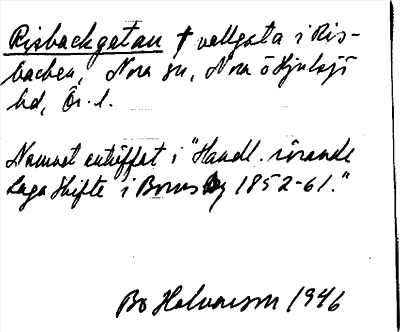 Risbackgatan † vallgata i Ris-
backen, Nora sn, Nora o Hjulsjö
hd, Ör. l.
Namnet anträffat i "Handl. rörande
Laga Skifte i Borns by 1852-61."
Bo Halvarsson 1946